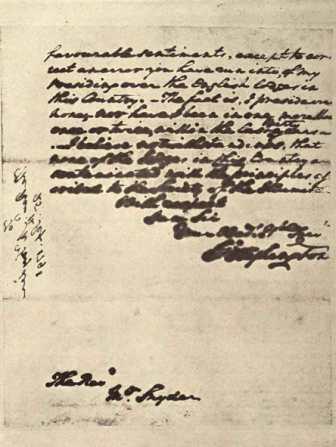 favourable sentiments, except to cor-
rect an error you have run into, of my
presiding over the English lodges in
this Country. The fact is, I preside over
none, nor have I been in one, more than
once or twice, within the last thirty years.
I believe notwithstandings, that
none of the Lodges in this Country are
contaminated with the principles as-
cribed to the Society of the Illuminati.
With respect
I am Sir
Your Obedt Hble Ser
Go Washington
The Revd
Mr Snyder